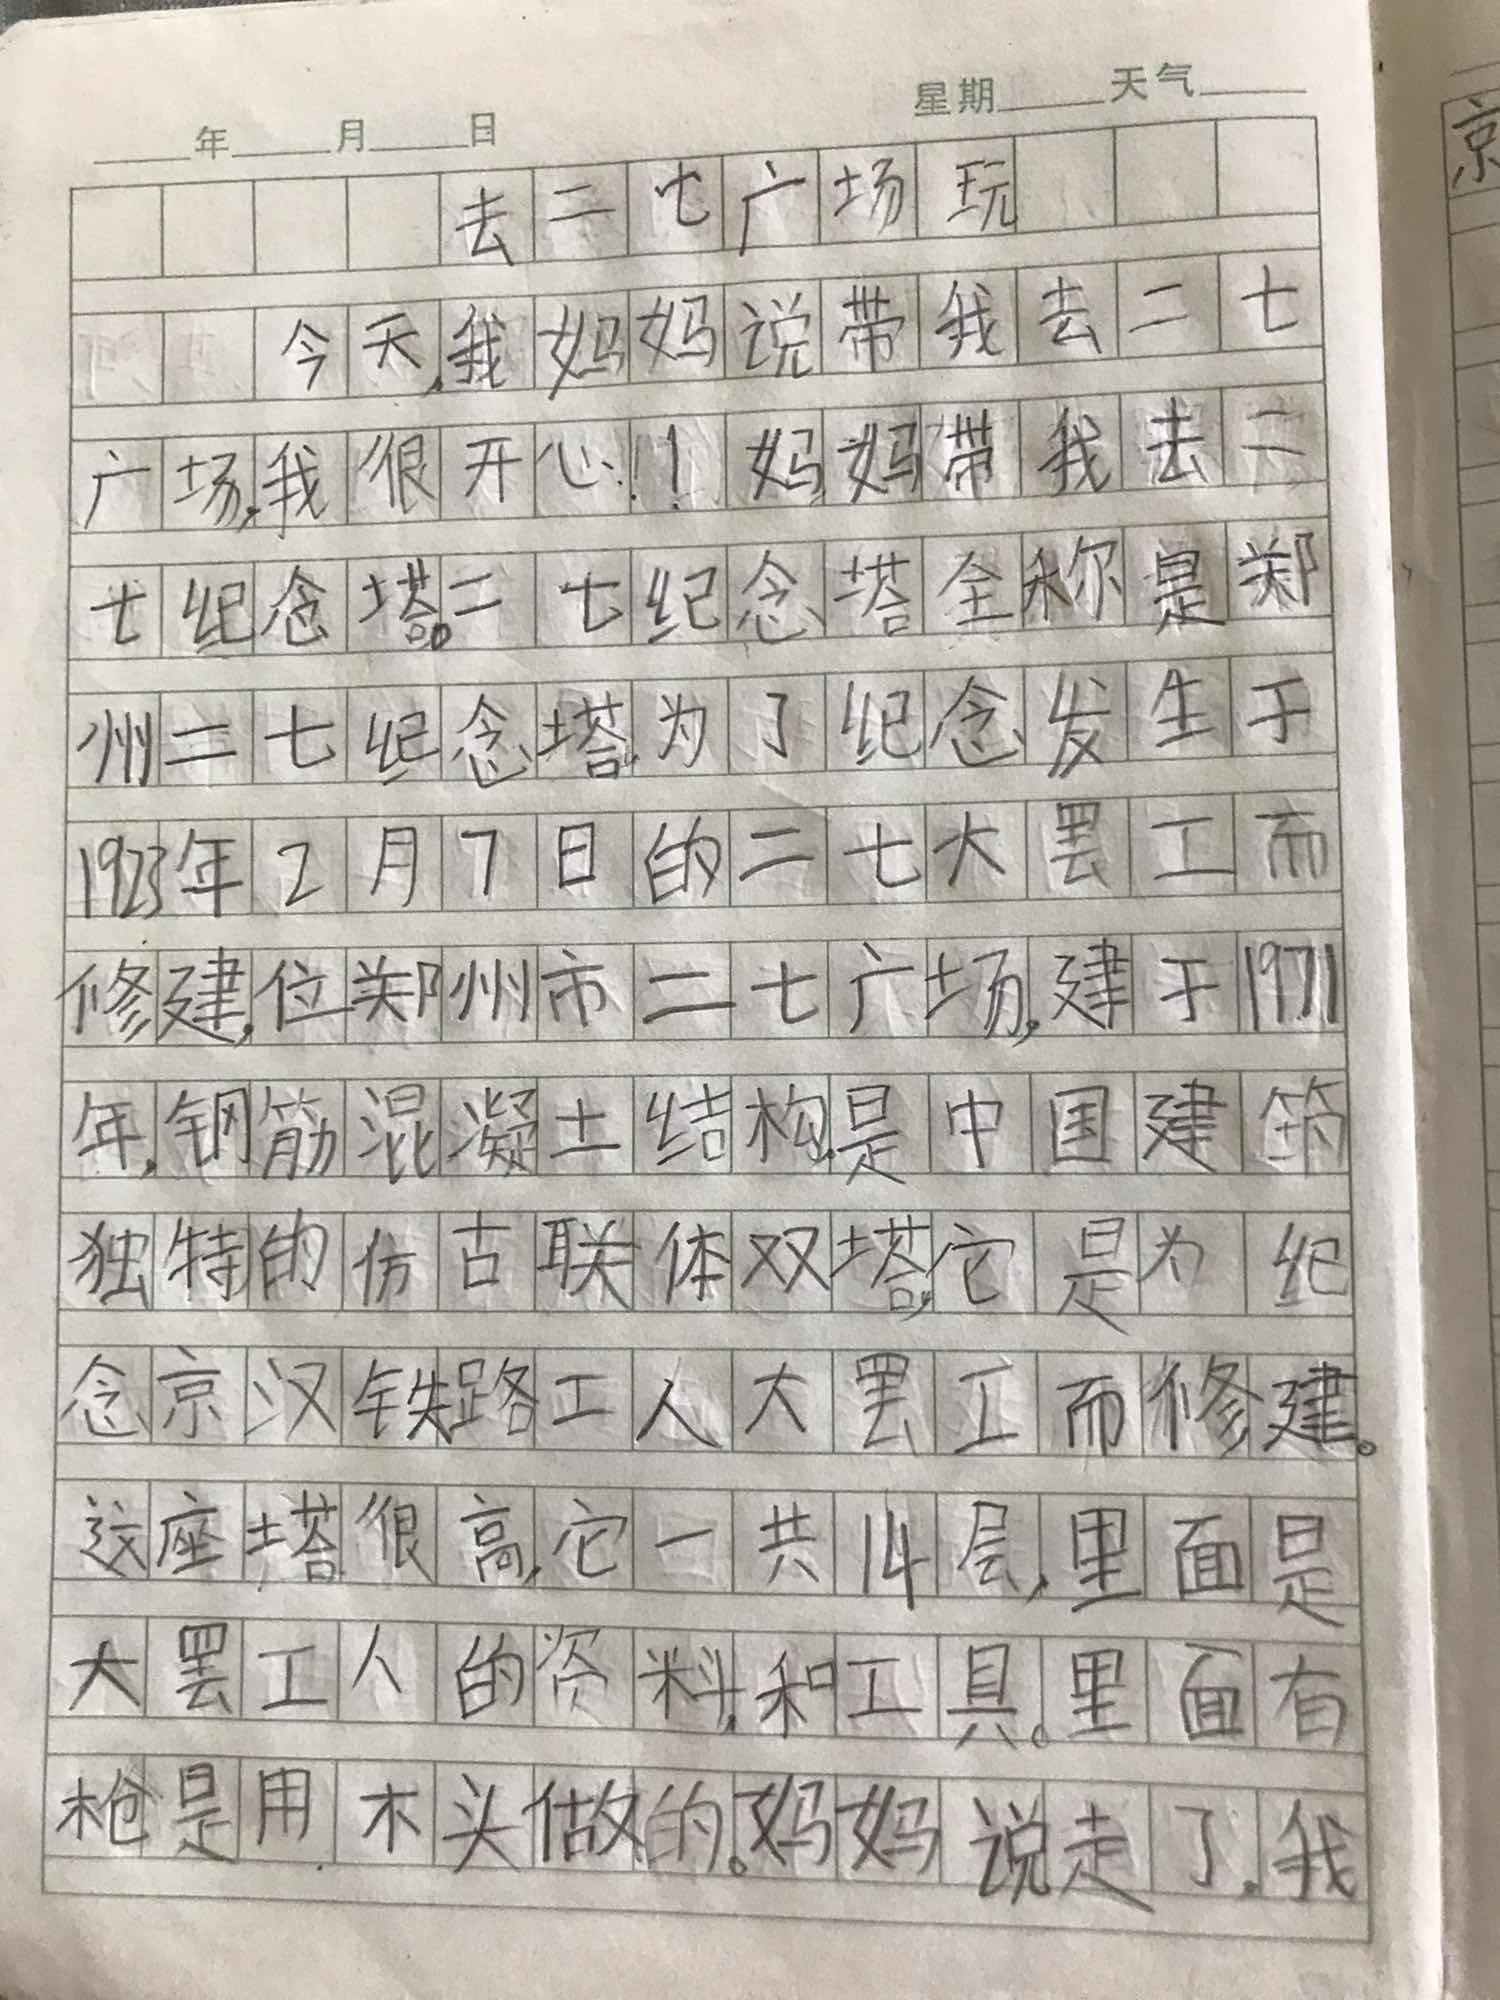 年 月 日 星期 天气
去二七广场玩
今天,我妈妈说带我去二七
广场,我很开心!!妈妈带我去二
七纪念塔。二七纪念塔全称是郑
州二七纪念塔,为了纪念发生于
1923年2月7日的二七大罢工而
修建,位郑州市二七广场,建于1971
年,钢筋混凝土结构,是中国建筑
独特的仿古联体双塔,它是为纪
念京汉铁路工人大罢工而修建。
这座塔很高,它一共14层,里面是
大罢工人的资料,和工具。里面有
枪是用木头做的。妈妈说走了,我
京